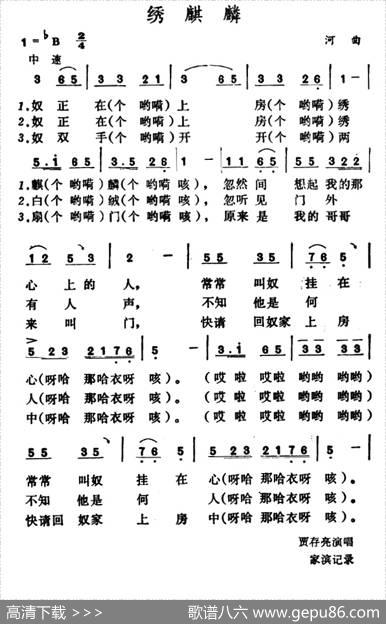 绣麒麟
1=♭B 2/4
河曲
中速
3 65 | 33 21 | 3 65 | 33 226 | 1 - |
1.奴正在(个哟嗬)上房(个哟嗬)绣
2.奴正在(个哟嗬)上房(个哟嗬)绣
3.奴双手(个哟嗬)开开(个哟嗬)两
5.i 65 | 3.5 26 | 1 - | 11 65 | 55 322 |
1.麒(个哟嗬)麟(个哟嗬咳)，忽然间想起我的那
2.白(个哟嗬)绒(个哟嗬咳)，忽听见门外
3.扇(个哟嗬)门(个哟嗬咳)，原来是我的哥哥
12 53 | 2 - | 55 35 | 76 5 |
心上的人，常常叫奴挂在
有人声，不知他是何
来叫门，快请回奴家上房
5 23 2176 | 5 - | 3.i 65 | 33 33 |
心(呀哈那哈衣呀咳)。(哎啦哎啦哟哟哟哟)
人(呀哈那哈衣呀咳)。(哎啦哎啦哟哟哟哟)
中(呀哈那哈衣呀咳)。(哎啦哎啦哟哟哟哟)
55 35 | 76 5 | 523 2176 | 5 - |
常常叫奴挂在心(呀哈那哈衣呀咳)。
不知他是何人(呀哈那哈衣呀咳)。
快请回奴家上房中(呀哈那哈衣呀咳)。
贾存亮演唱
家滨记录
高清下载 >>>
歌谱八六 www.gepu86.com